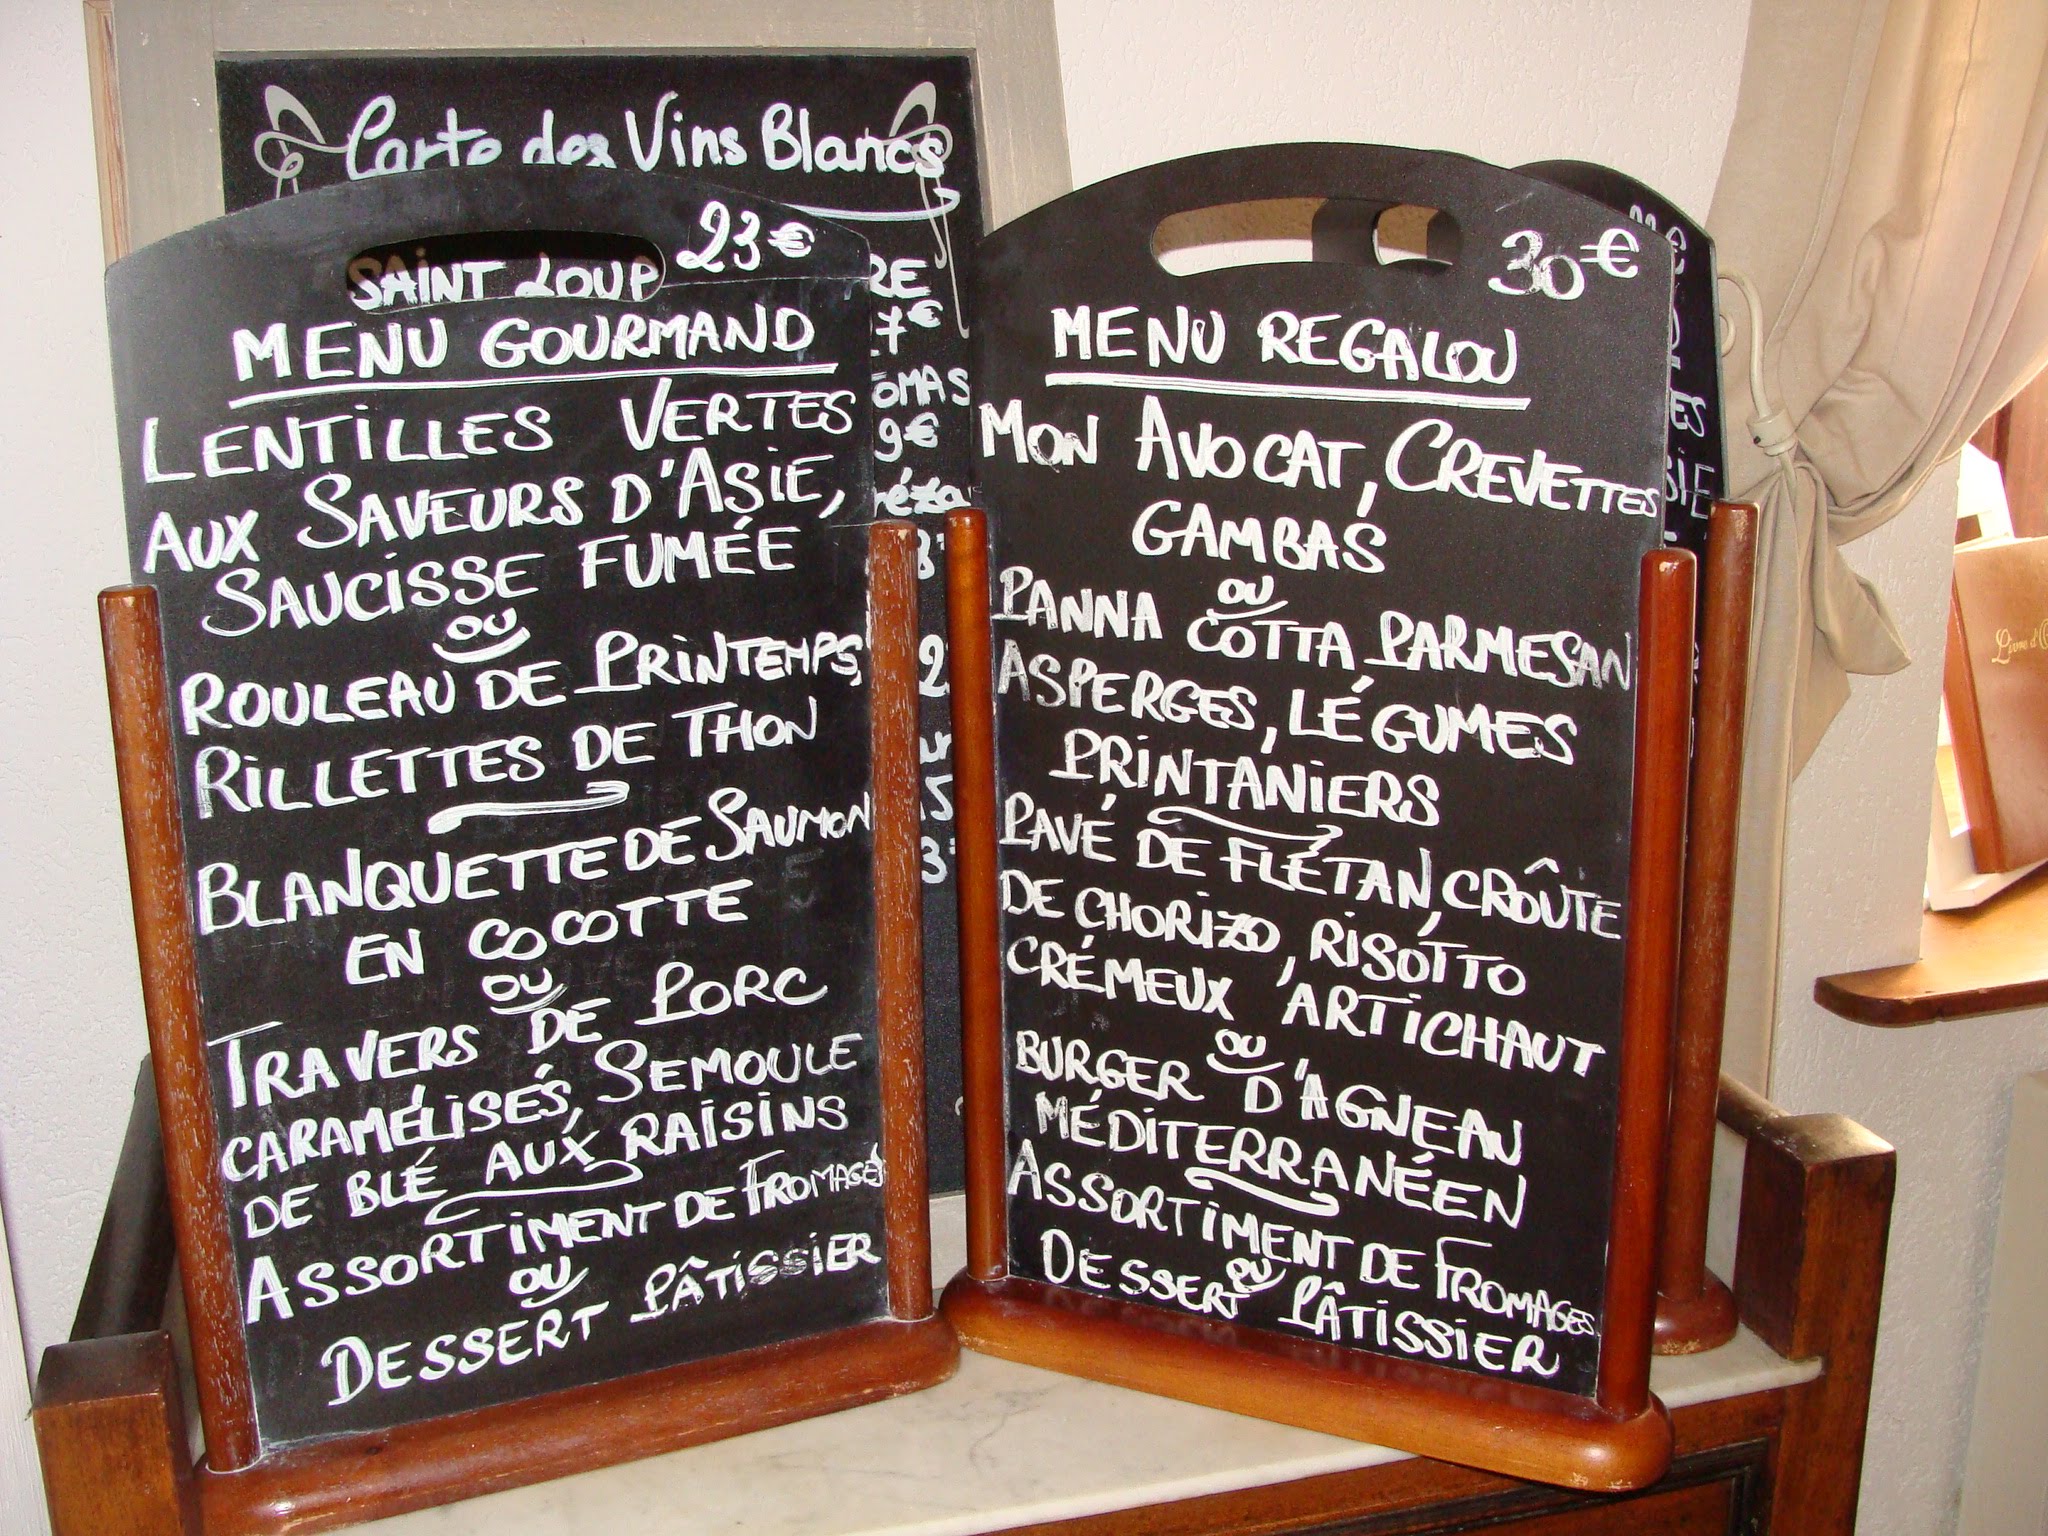 Carte des Vins Blancs
SAINT LOUP
23€
MENU GOURMAND
LENTILLES VERTES
AUX SAVEURS D'ASIE,
SAUCISSE FUMÉE
OU
ROULEAU DE PRINTEMPS,
RILLETTES DE THON
BLANQUETTE DE SAUMON
EN COCOTTE
OU
TRAVERS DE PORC
CARAMÉLISÉS, SEMOULE
DE BLÉ AUX RAISINS
ASSORTIMENT DE FROMAGES
OU
DESSERT PÂTISSIER
RE
7€
ÔMAS
9€
30€
MENU REGALOU
MON AVOCAT, CREVETTES
GAMBAS
OU
PANNA COTTA PARMESAN
ASPERGES, LÉGUMES
PRINTANIERS
PAVÉ DE FLÉTAN, CROÛTE
DE CHORIZO, RISOTTO
CRÉMEUX, ARTICHAUT
OU
BURGER D'AGNEAU
MÉDITERRANÉEN
ASSORTIMENT DE FROMAGES
OU
DESSERT PÂTISSIER
Livre d'O